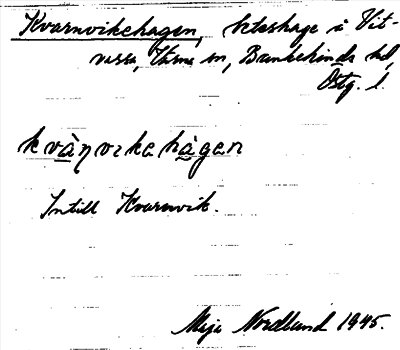 Kvarnvikehagen, beteshage i Vit-
varsa, Värna sn, Bankekinds hd,
Östg. l.
kvàṇvikehàgen
Intill Kvarnvik.
Maja Nordlund 1945.